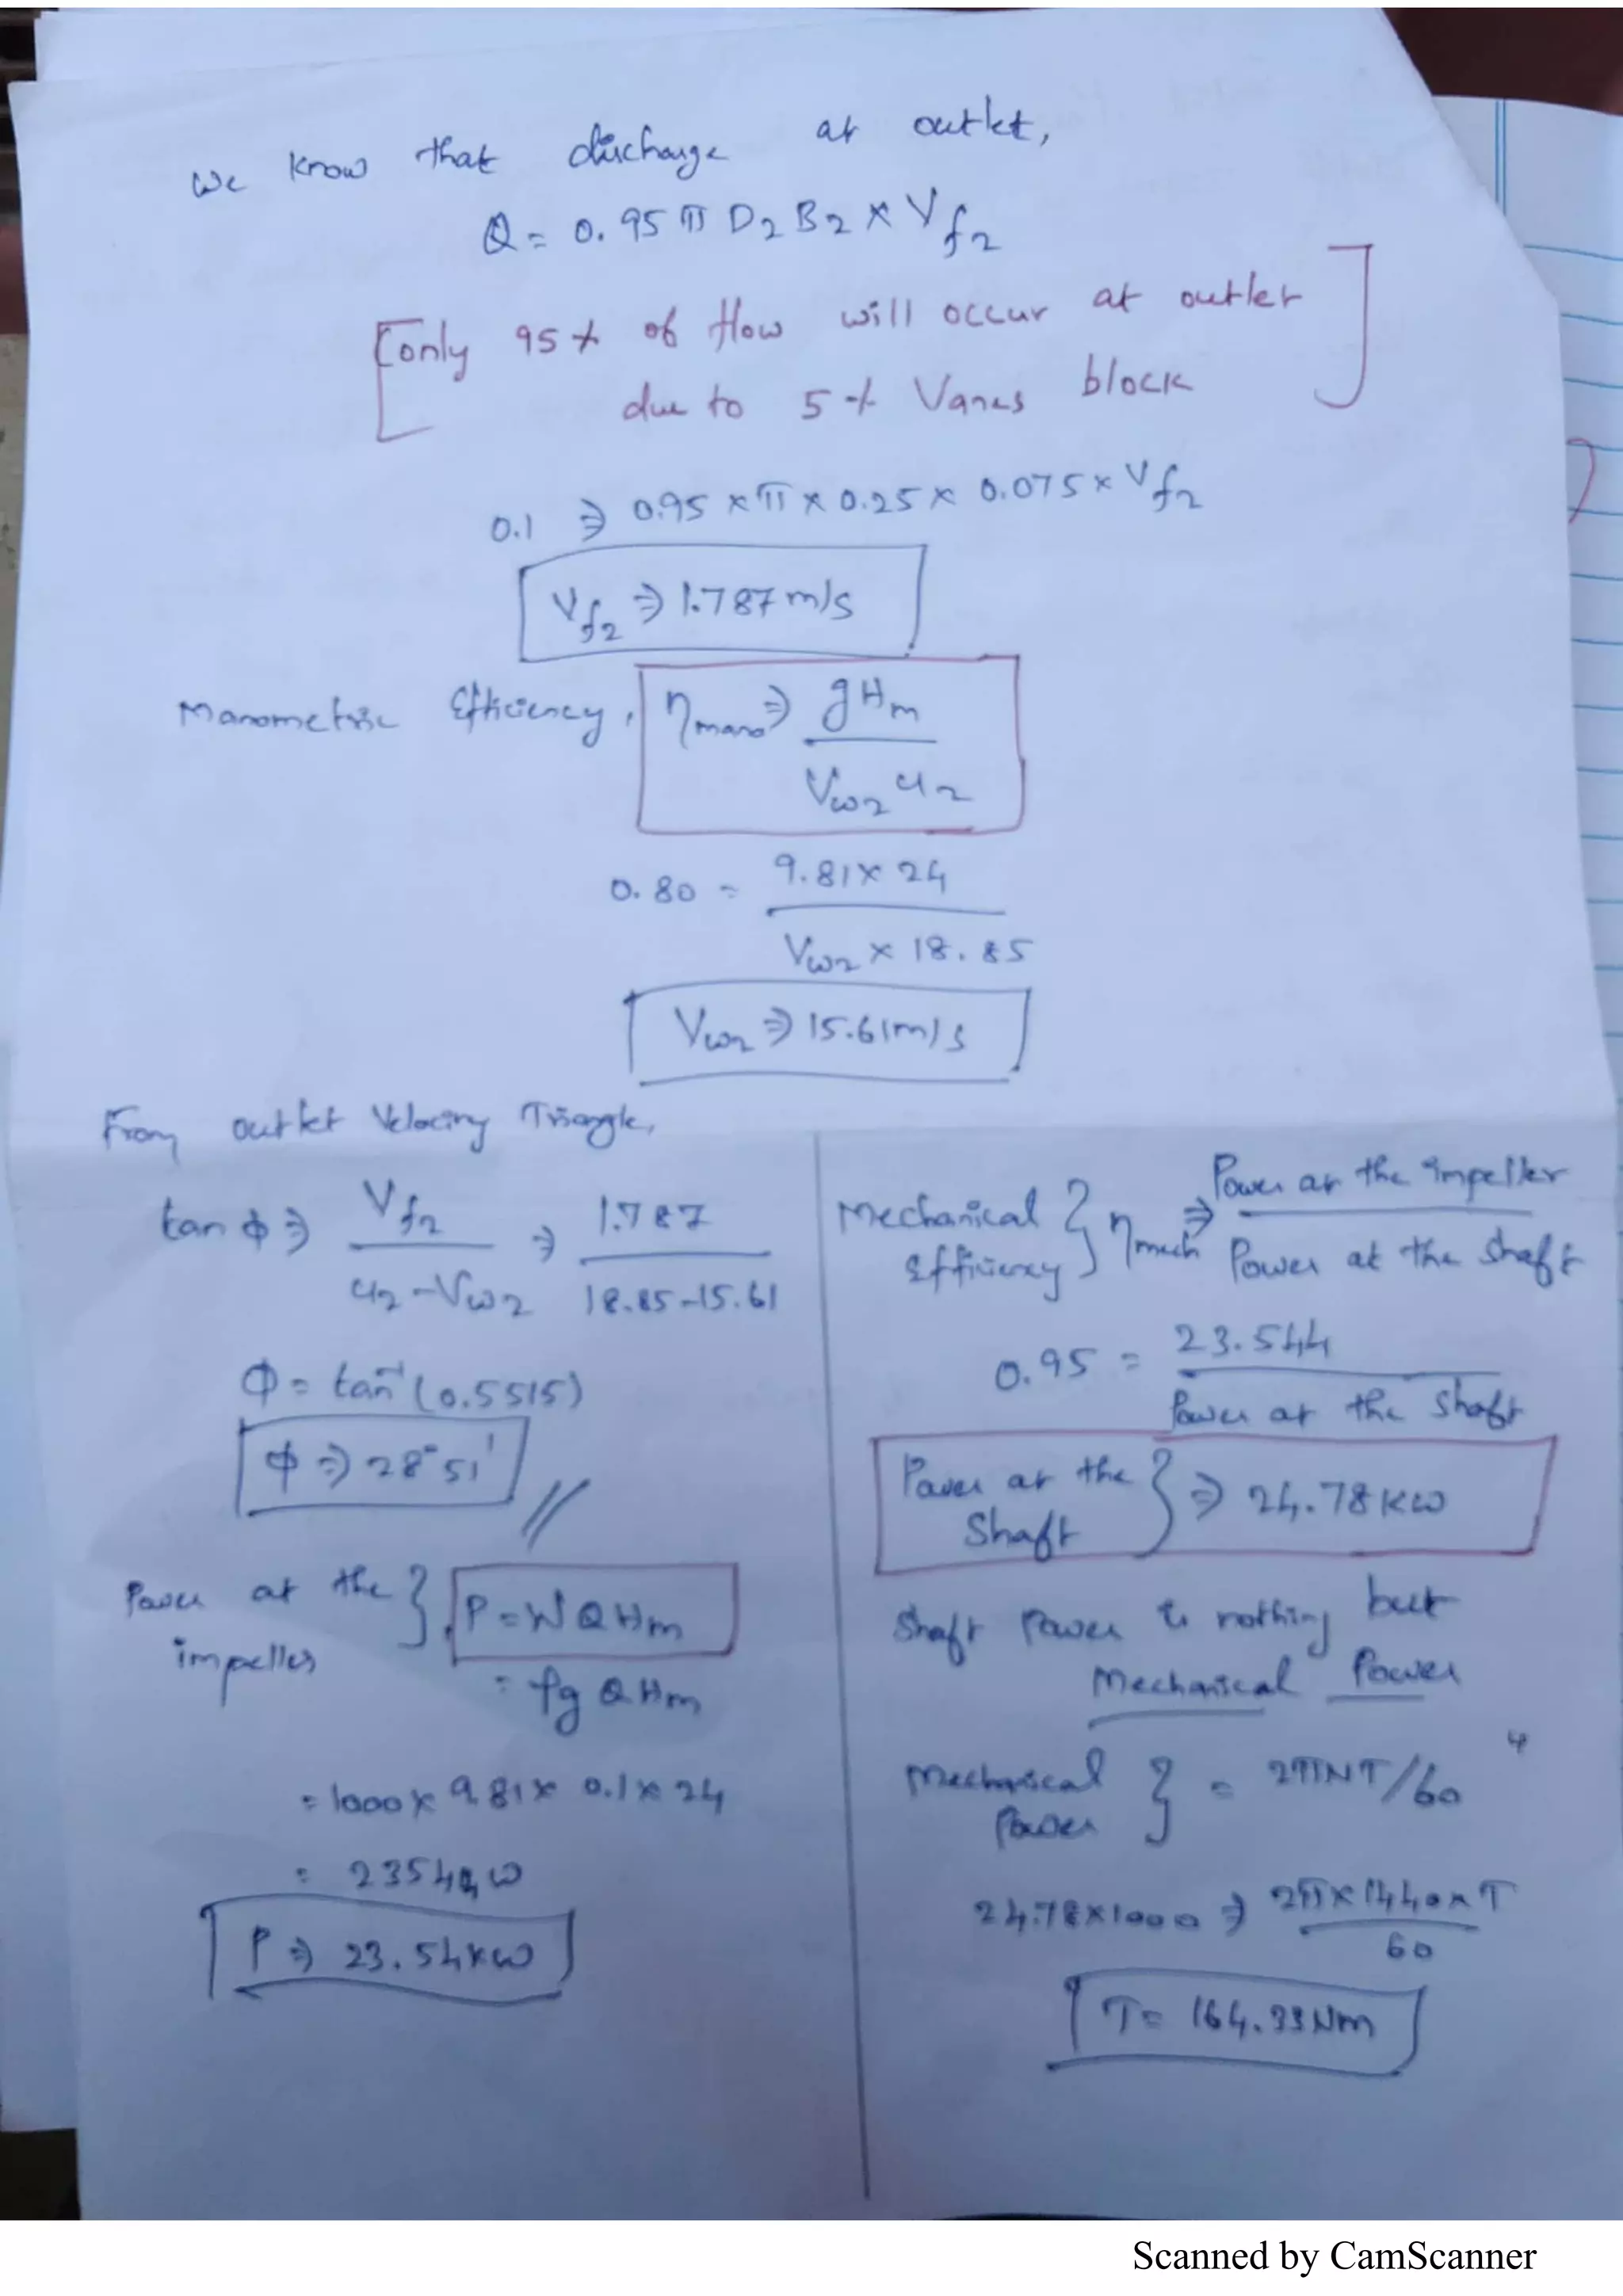 we know that discharge at outlet,
Q = 0.95 π D2 B2 × Vf2
[only 95% of flow will occur at outlet
due to 5% Vanes block]
0.1 ⇒ 0.95 × π × 0.25 × 0.075 × Vf2
Vf2 ⇒ 1.787 m/s
Manometric Efficiency, ηmano ⇒ gHm / Vw2 u2
0.80 = 9.81 × 24 / Vw2 × 18.85
Vw2 ⇒ 15.61 m/s
From outlet Velocity Triangle,
tan ϕ ⇒ Vf2 / u2 - Vw2 ⇒ 1.787 / 18.85 - 15.61
ϕ = tan⁻¹ (0.5515)
ϕ ⇒ 28° 51' //
Power at the impeller } P = W Q Hm
= ρg Q Hm
= 1000 × 9.81 × 0.1 × 24
= 23544 W
P ⇒ 23.54 kW
Mechanical Efficiency } ηmech ⇒ Power at the impeller / Power at the shaft
0.95 = 23.544 / Power at the shaft
Power at the Shaft } ⇒ 24.78 KW
Shaft Power is nothing but
Mechanical Power
Mechanical Power } = 2πNT/60
24.78×1000 ⇒ 2π × 1440 × T / 60
T = 164.33 Nm
Scanned by CamScanner